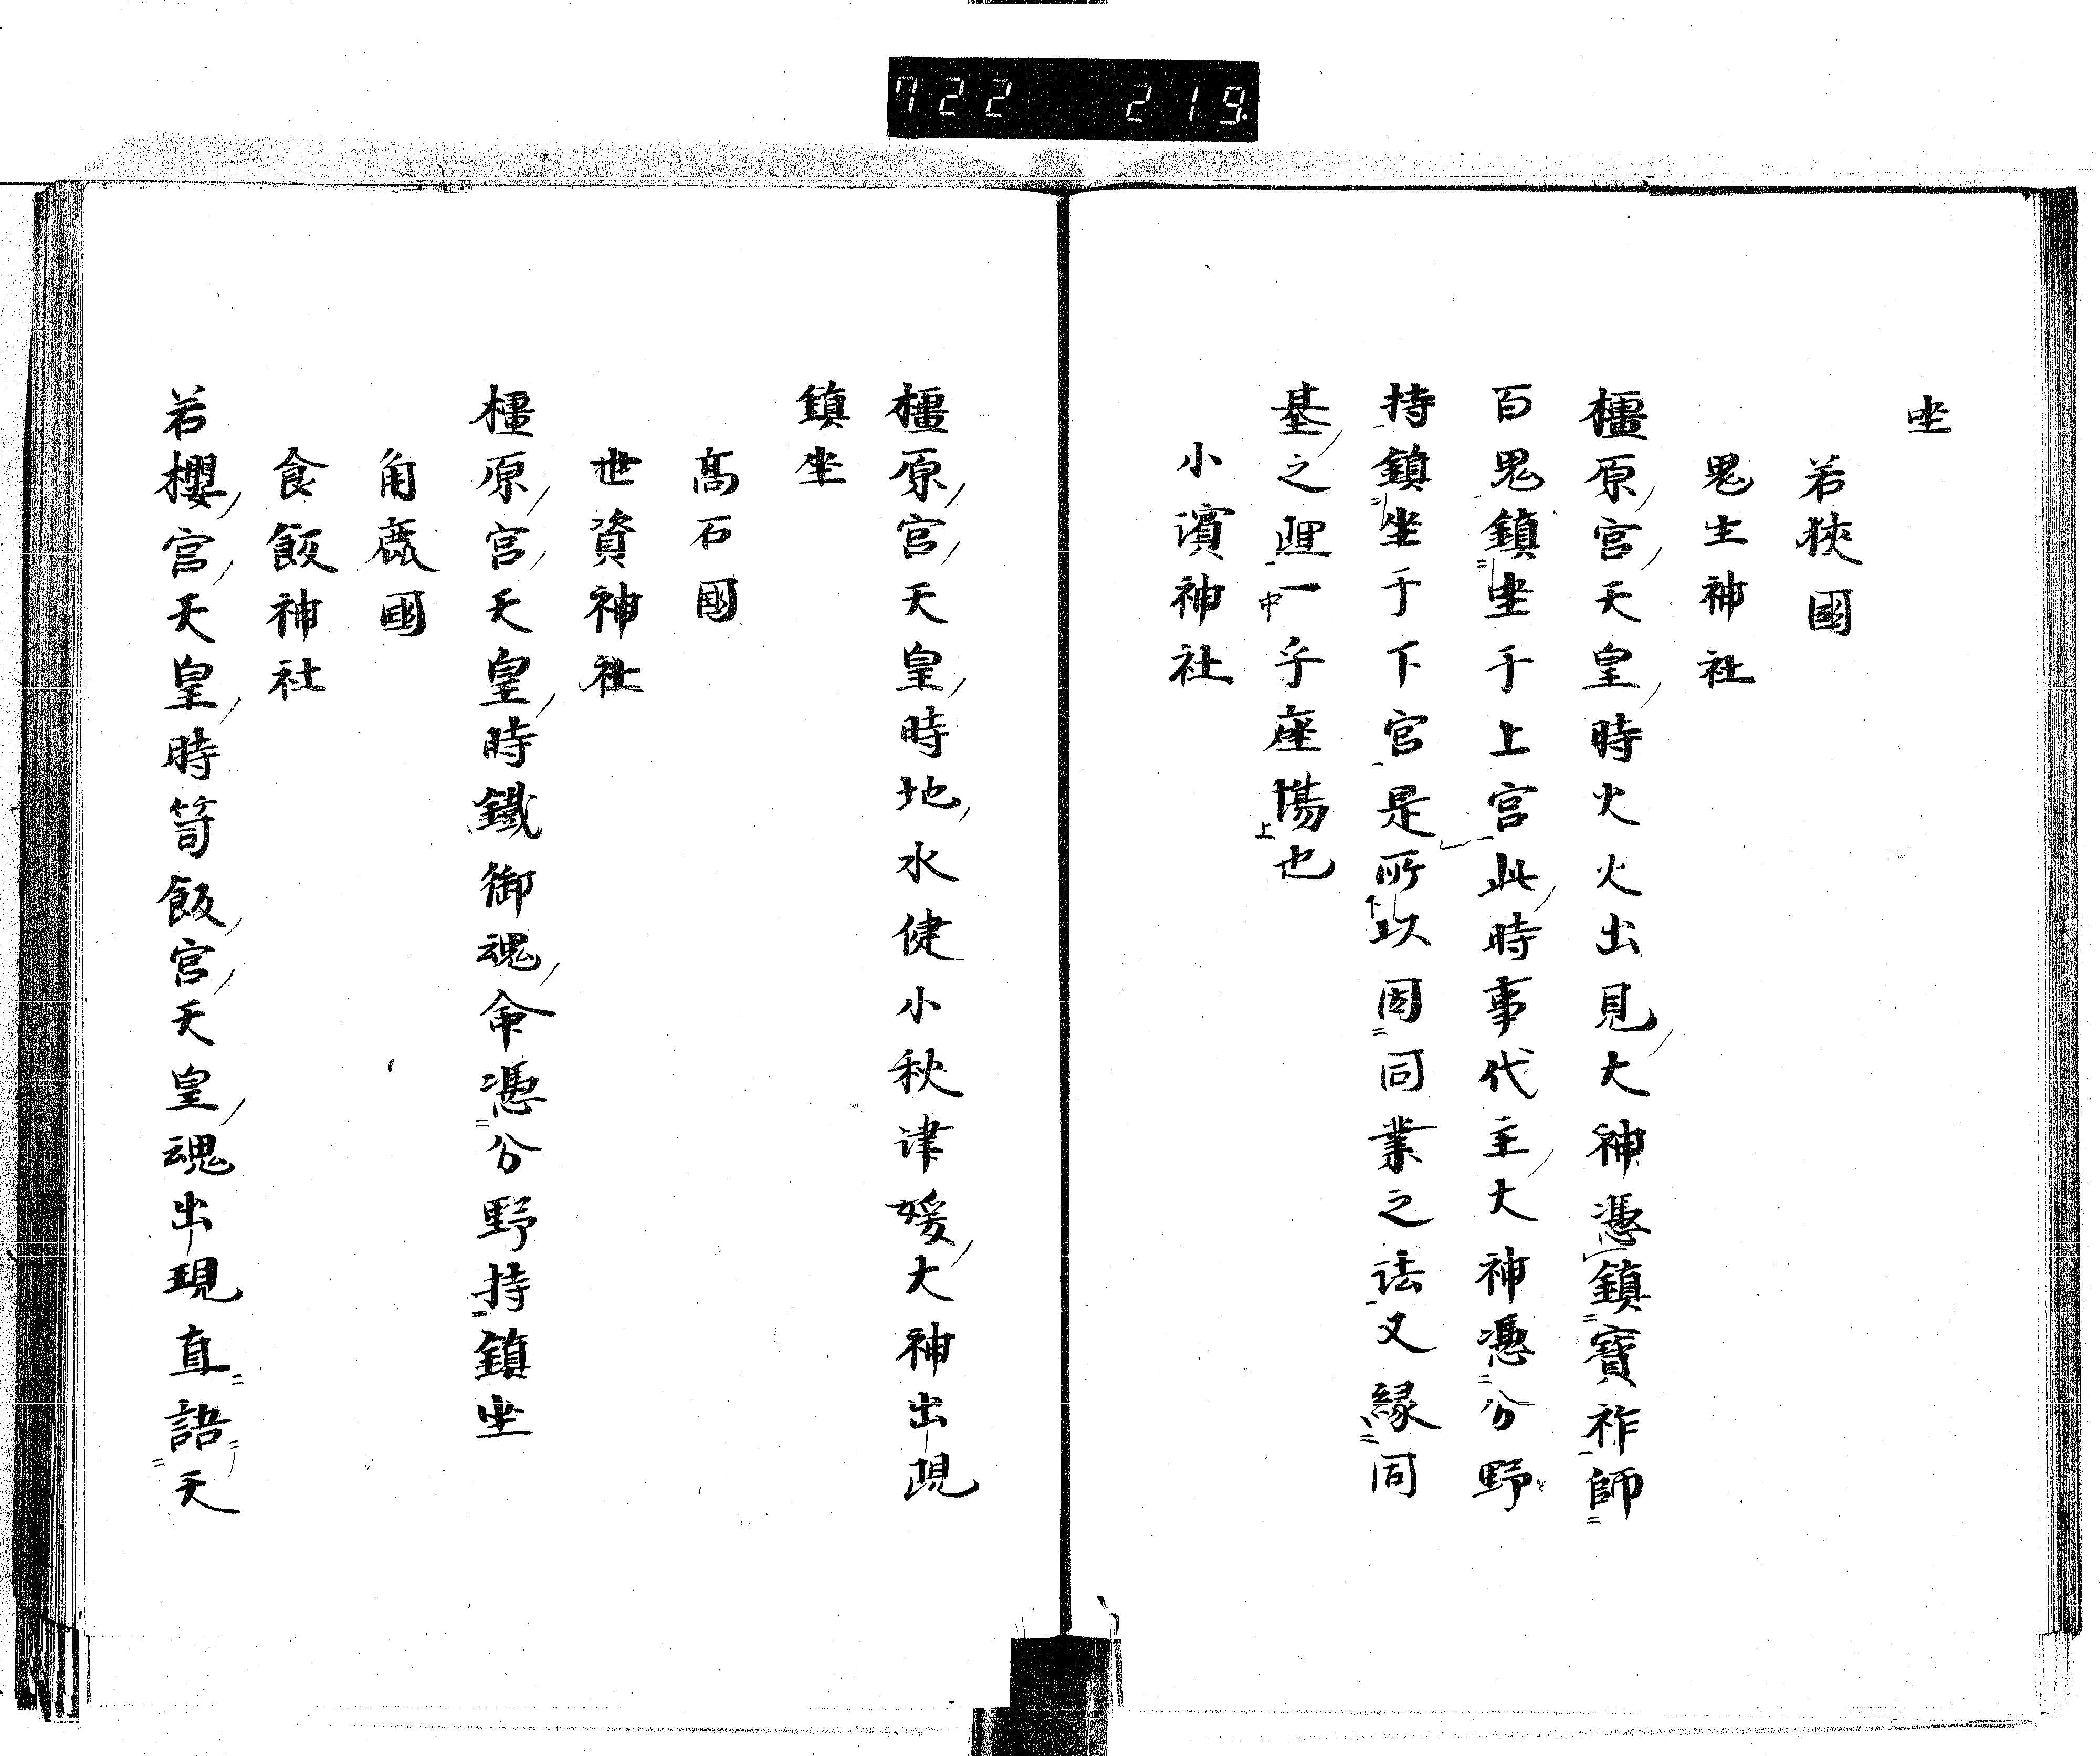 722 219.
坐
若狹國
鬼生神社
橿原宮天皇時火火出見大神憑鎮寶祚師
百鬼鎮坐于上宮此時事代主大神憑分野
持鎮坐于下宮是所以因同業之法又緣同
基之理一乎座場也
小濱神社
橿原宮天皇時地水健小秋津媛大神出現
鎮坐
髙石國
世資神社
橿原宮天皇時鐵御魂命憑分野持鎮坐
角鹿國
食飯神社
若櫻宮天皇時笥飯宮天皇魂出現直語天